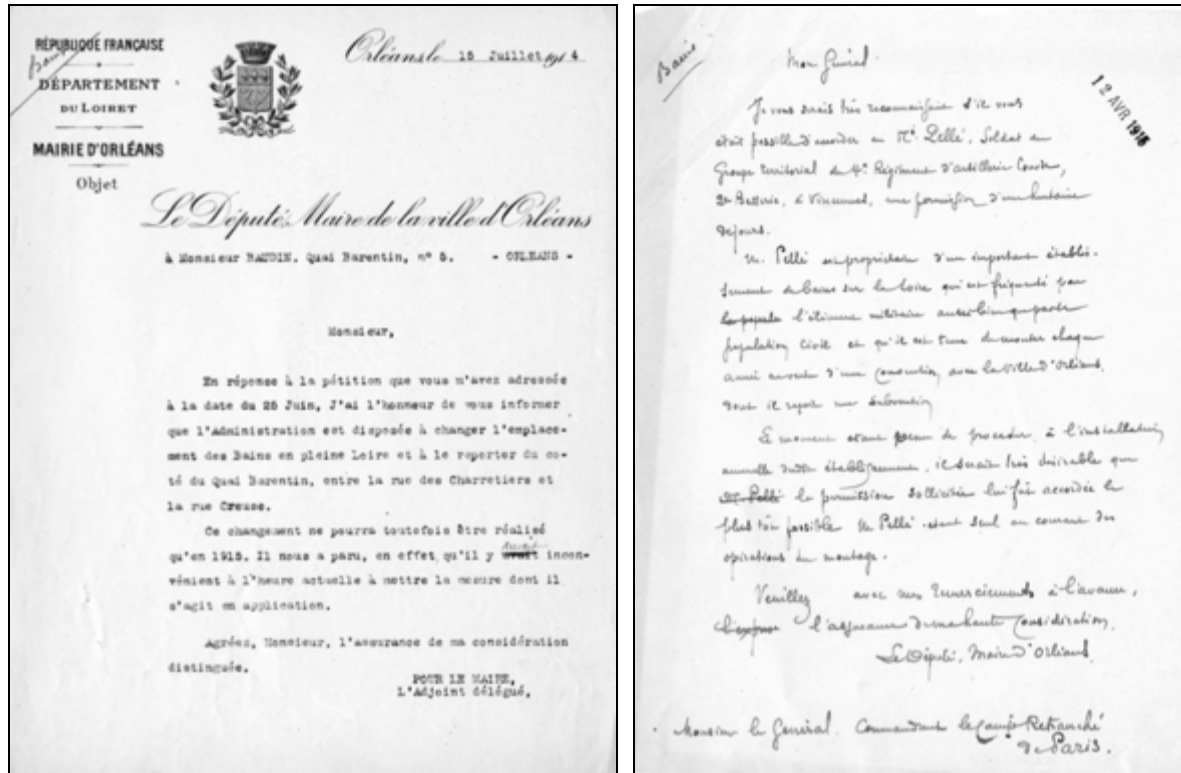 RÉPUBLIQUE FRANÇAISE
DÉPARTEMENT
DU LOIRET
MAIRIE D'ORLÉANS
Objet
Orléans, le 15 Juillet 1914
Le Député Maire de la ville d'Orléans
à Monsieur BAUDIN. Quai Barentin, n° 5. - ORLEANS -
Monsieur,
En réponse à la pétition que vous m'avez adressée
à la date du 25 Juin, J'ai l'honneur de vous informer
que l'Administration est disposée à changer l'emplace-
ment des Bains en pleine Loire et à le reporter du co-
té du Quai Barentin, entre la rue des Charretiers et
la rue Creuse.
Ce changement ne pourra toutefois être réalisé
qu'en 1915. Il nous a paru, en effet, qu'il y avait incon-
vénient à l'heure actuelle à mettre la mesure dont il
s'agit en application.
Agréez, Monsieur, l'assurance de ma considération
distinguée.
POUR LE MAIRE,
L'Adjoint délégué,
Bains
Mon Général
12 AVR 1916
Je vous serais très reconnaissant s'il vous
était possible d'accorder au Mr. Pellé, Soldat au
Groupe territorial du Régiment d'artillerie
Batterie, à Vincennes, une permission d'une huitaine
de jours.
M. Pellé est propriétaire d'un important établis-
sement de bains sur la Loire qui est fréquenté par
l'élément militaire aussi bien que par la
population civile et qu'il est tenu de monter chaque
année en vertu d'une convention avec la Ville d'Orléans,
dont il reçoit une subvention
Le moment étant venu de procéder à l'installation
annuelle dudit établissement, il serait très désirable que
M. Pellé la permission sollicitée lui fût accordée le
plus tôt possible M. Pellé étant seul au courant des
opérations du montage.
Veuillez avec mes remerciements à l'avance,
l'assurance de ma haute considération.
Le Député, Maire d'Orléans.
Monsieur le Général Commandant le Camp Retranché
de Paris.